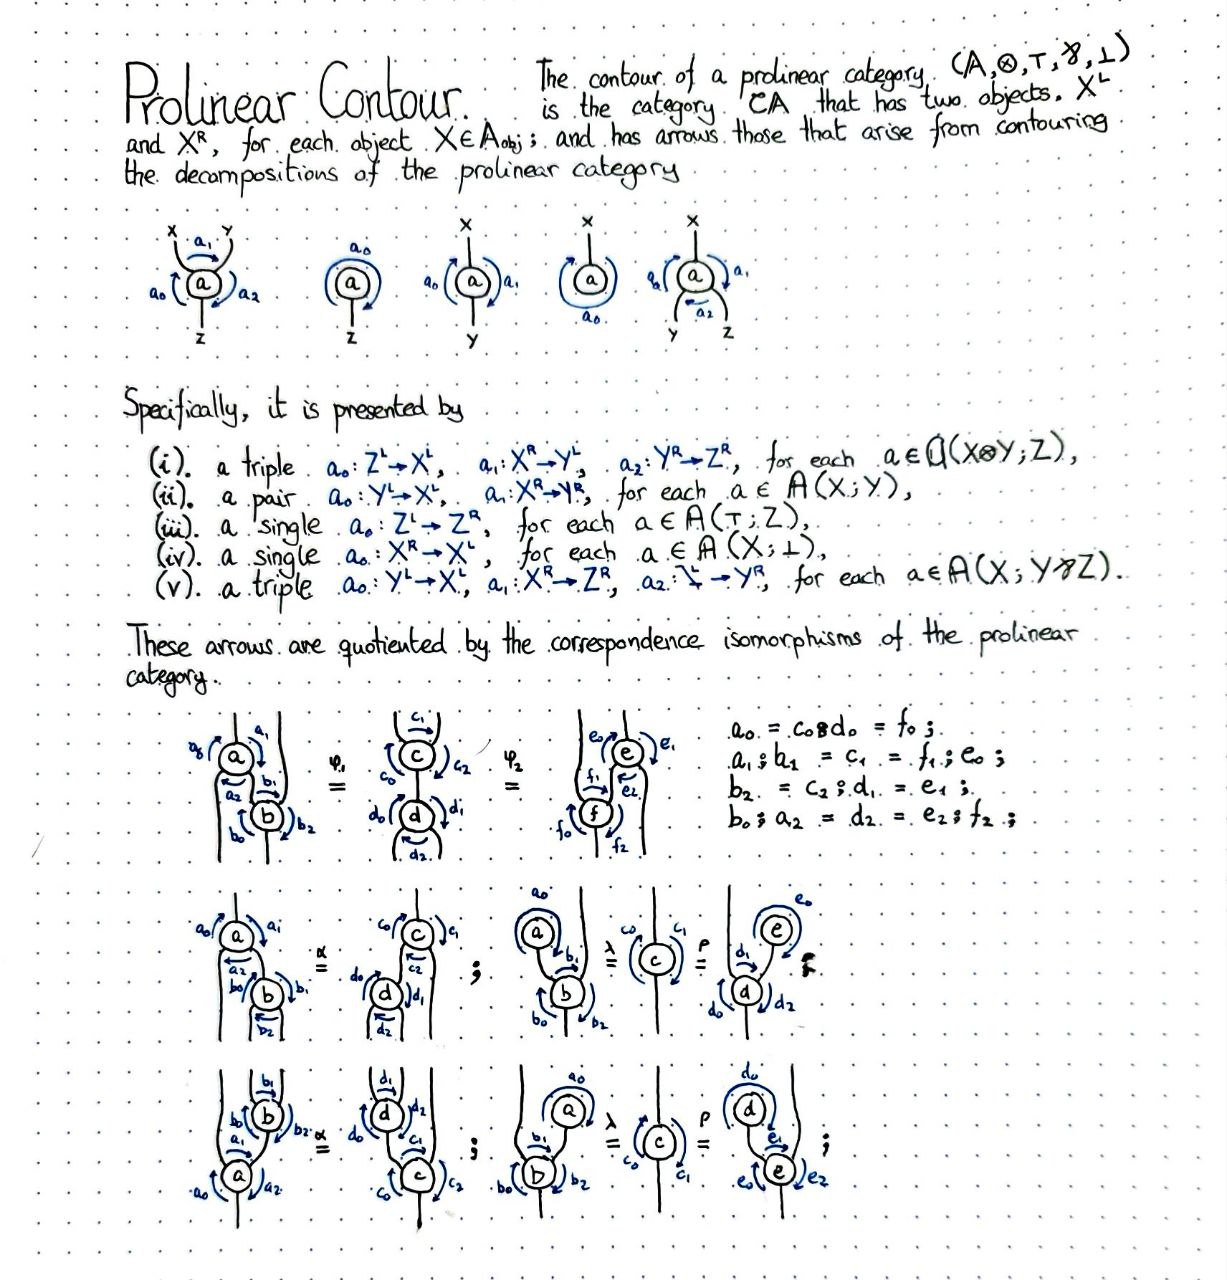 Prolinear Contour. The contour of a prolinear category (A,⊗,⊤,⅋,⊥)
is the category CA that has two objects, Xᴸ
and Xᴿ, for each object X∈A_obj; and has arrows those that arise from contouring
the decompositions of the prolinear category
X Y a₁ a a₀ a₂ Z
a₀ a Z
X a₀ a a₁ Y
X a a₀
X a a₁ a₂ Y Z
Specifically, it is presented by
(i). a triple a₀: Zᴸ→Xᴸ, a₁: Xᴿ→Yᴸ, a₂: Yᴿ→Zᴿ, for each a∈A(X⊗Y;Z),
(ii). a pair a₀: Yᴸ→Xᴸ, a₁: Xᴿ→Yᴿ, for each a∈A(X;Y),
(iii). a single a₀: Zᴸ→Zᴿ, for each a∈A(⊤;Z),
(iv). a single a₀: Xᴿ→Xᴸ, for each a∈A(X;⊥),
(v). a triple a₀: Yᴸ→Xᴸ, a₁: Xᴿ→Zᴿ, a₂: →Yᴿ, for each a∈A(X;Y⅋Z).
These arrows are quotiented by the correspondence isomorphisms of the prolinear
category.
a₀ a a₁ a₂ b₁ b b₀ b₂ φ₁ = c₁ c c₀ c₂ d₀ d d₁ d₂ φ₂ = e₀ e e₁ e₂ f₁ f f₀ f₂
a₀ = c₀⨟d₀ = f₀;
a₁⨟b₁ = c₁ = f₁⨟e₀;
b₂ = c₂⨟d₁ = e₁;
b₀⨟a₂ = d₂ = e₂⨟f₂;
a₀ a a₁ a₂ b₀ b b₁ b₂ α = c₀ c c₁ c₂ d₀ d d₁ d₂ ; a₀ a b₁ b b₀ b₂ λ = c₀ c c₁ ρ = e₀ e d₁ d d₀ d₂ ;
b₁ b b₀ b₂ a₁ a a₀ a₂ α = d₁ d d₂ d₀ c₁ c c₀ c₂ ; a₀ a b₁ b b₀ b₂ λ = c c₀ c₁ ρ = d₀ d e₁ e e₀ e₂ ;